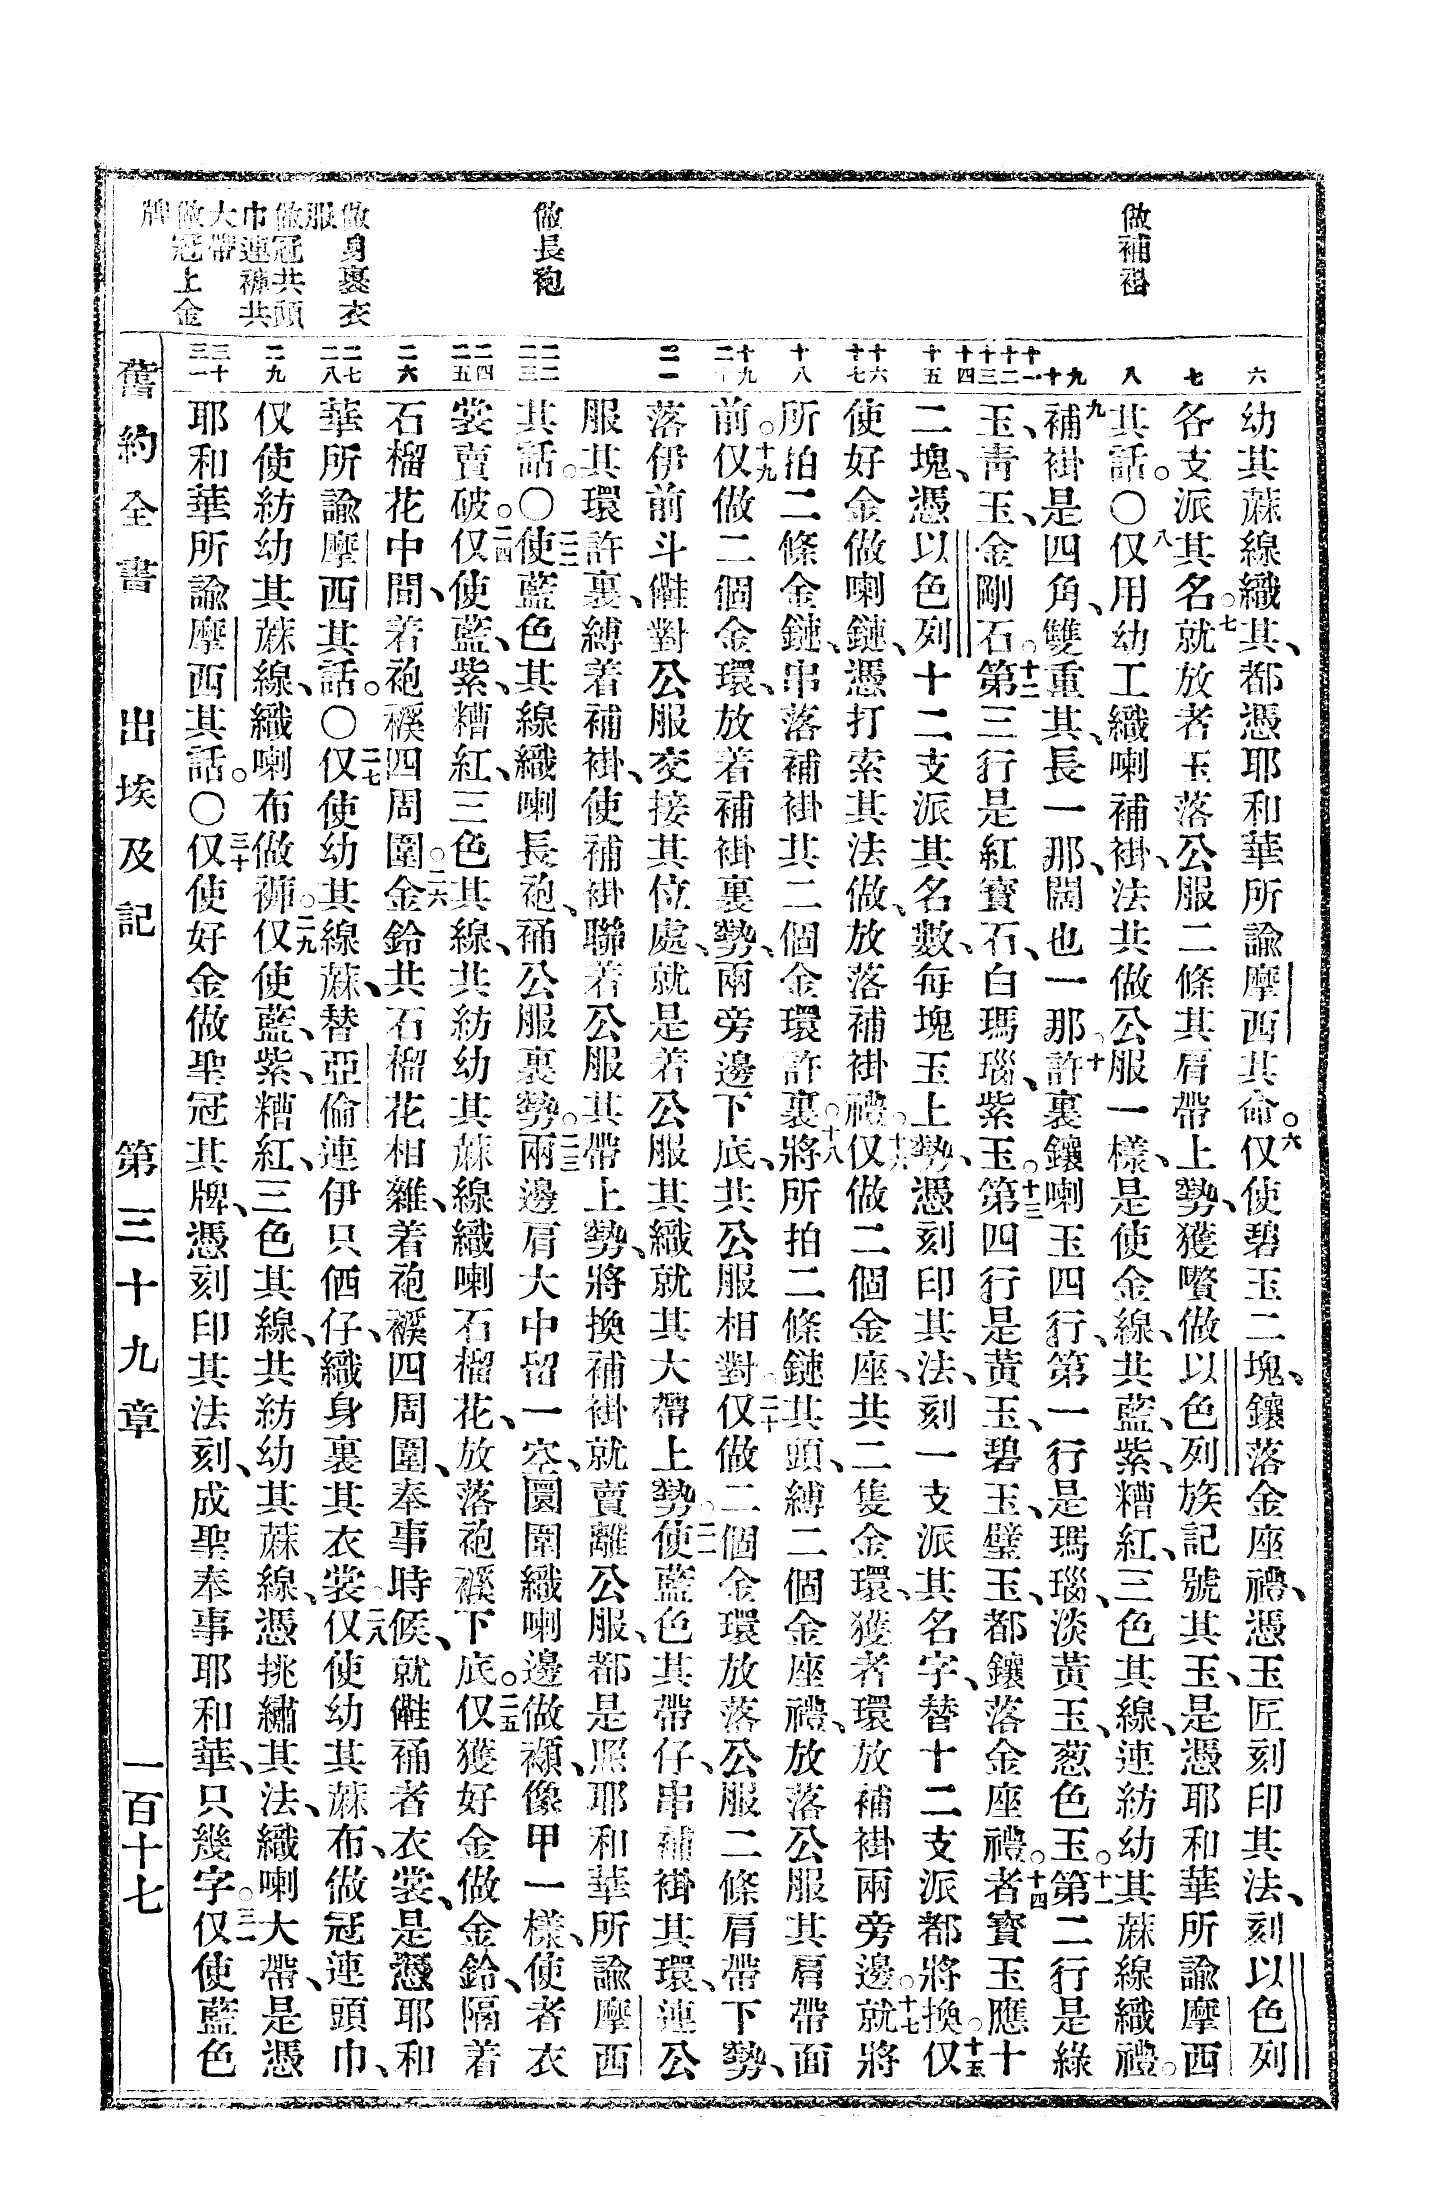 做補褂
做長袍
做身裏衣
服
做冠共頭
巾連褲共
大帶
做冠上金
牌
六
七
八
九 十
十一 十二 十三 十四
十五
十六 十七
十八
十九 二十
二一
二二 二三
二四 二五
二六
二七 二八
二九
三十 三一
幼其蔴線織其、都憑耶和華所諭摩西其命。六仅使碧玉二塊、鑲落金座禮、憑玉匠刻印其法、刻以色列
各支派其名。七就放者玉落公服二條其肩帶上勢、獲嚽做以色列族記號其玉、是憑耶和華所諭摩西
其話。〇八仅用幼工織喇補褂、法共做公服一樣、是使金線、共藍、紫、糟紅、三色其線、連紡幼其蔴線織禮。
九補褂是四角、雙重其、長一那、闊也一那。十許裏鑲喇玉四行、第一行是瑪瑙、淡黃玉、葱色玉。十一第二行是綠
玉、靑玉、金剛石。十二第三行是紅寶石、白瑪瑙、紫玉。十三第四行是黃玉、碧玉、璧玉、都鑲落金座禮。十四者寶玉應十
二塊、憑以色列十二支派其名數、每塊玉上勢、憑刻印其法、刻一支派其名字、替十二支派都將換。十五仅
使好金做喇鏈、憑打索其法做、放落補褂禮。十六仅做二個金座、共二隻金環、獲者環放補褂兩旁邊。十七就將
所拍二條金鏈、串落補褂其二個金環許裏。十八將所拍二條鏈其頭、縛二個金座禮、放落公服其肩帶面
前。十九仅做二個金環、放着補褂裏勢、兩旁邊下底、共公服相對。二十仅做二個金環放落公服二條肩帶下勢、
落伊前斗㒰對公服交接其位處、就是着公服其織就其大帶上勢。二一使藍色其帶仔、串補褂其環、連公
服其環許裏、縛着補褂、使補褂聯着公服其帶上勢、將換補褂就賣離公服、都是照耶和華所諭摩西
其話。〇二二使藍色其線織喇長袍、補公服裏勢。二三兩邊肩大中留一空、圜圍織喇邊做襭、像甲一樣、使者衣
裳賣破。二四仅使藍、紫、糟紅、三色其線、共紡幼其蔴線織喇石榴花、放落袍襨下底。二五仅獲好金做金鈴、隔着
石榴花中間、着袍襨四周圍。二六金鈴共石榴花相雜、着袍襨四周圍、奉事時候、就㒰補者衣裳、是憑耶和
華所諭摩西其話。〇二七仅使幼其線蔴、替亞倫連伊只㑚仔、織身裏其衣裳。二八仅使幼其蔴布、做冠連頭巾、
仅使紡幼其蔴線、織喇布做褲。二九仅使藍、紫、糟紅、三色其線、共紡幼其蔴線、憑挑繡其法、織喇大帶、是憑
耶和華所諭摩西其話。〇三十仅使好金做聖冠其牌、憑刻印其法刻、成聖奉事耶和華、只幾字。三一仅使藍色
舊約全書 出埃及記 第三十九章 一百十七